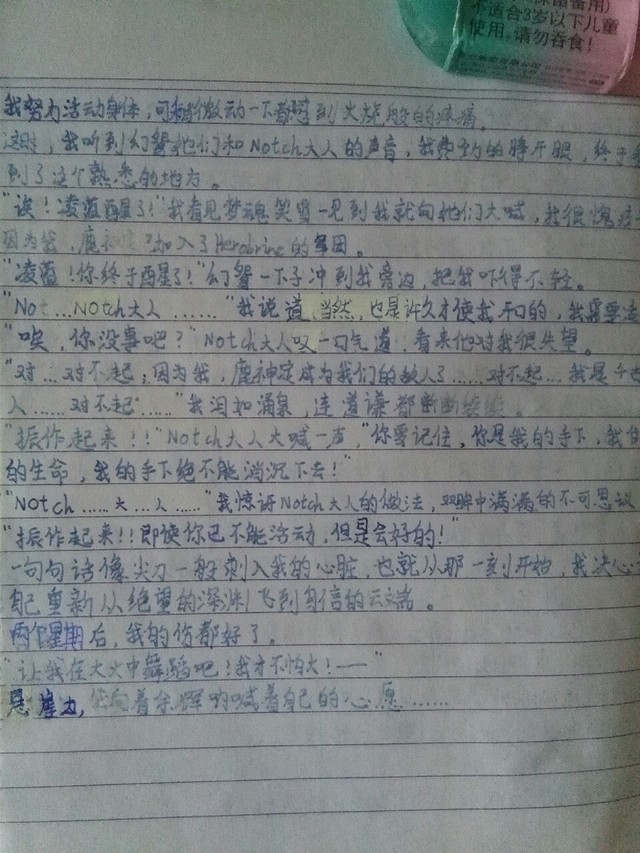 保留备用)
不适合3岁以下儿童
使用,请勿吞食!
我努力活动身体,可稍微动一下都感到火烧般的疼痛。
这时,我听到幻髻他们和Notch大人的声音,我费力的睁开眼,终于
到了这个熟悉的地方。
"诶!凌蓝醒了!"我看见梦魂笑雪一见到我就向他们大喊,我很愧疚
因为我,鹿神定加入了Herobrine的军团。
"凌蓝!你终于醒了!"幻髻一下子冲到我旁边,把我吓得不轻。
"Not...Notch大人……"我说道,当然,也是许久才使我开口的,我需要
"唉,你没事吧?"Notch大人叹一口气道,看来他对我很失望。
"对...对不起,因为我,鹿神定成为我们的敌人了……对不起...我是千古
人……对不起……"我泪如涌泉,连道谦都断断续续。
"振作起来!!"Notch大人大喊一声,"你要记住,你是我的手下,我
的生命,我的手下绝不能消沉下去!"
"Notch……大...人……"我惊讶Notch大人的做法,双眸中满满的不可思议
"振作起来!!即使你已不能活动,但是会好的!"
一句句话像尖刀一般刺入我的心脏,也就从那一刻开始,我决心
自己重新从绝望的深渊飞到自信的云端。
两个星期后,我的伤都好了。
"让我在大火中舞蹈吧!我才不怕火!——"
悬崖边,向着余辉喊着自己的心愿……